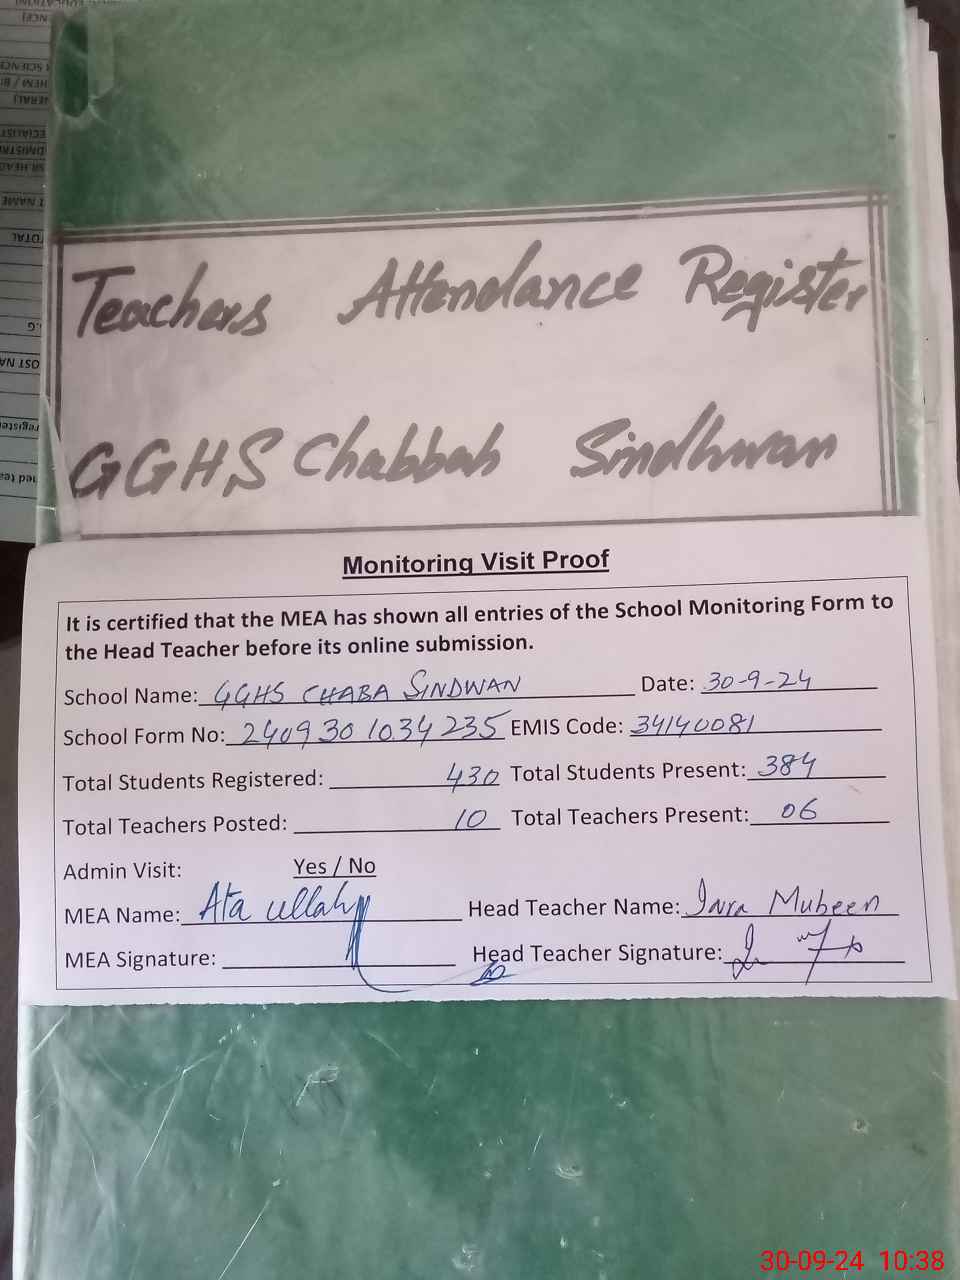 Teachers Attendance Register
GGHS Chabbah Sindhwan
Monitoring Visit Proof
It is certified that the MEA has shown all entries of the School Monitoring Form to
the Head Teacher before its online submission.
School Name: GGHS CHABA SINDWAN Date: 30-9-24
School Form No: 2409301034235 EMIS Code: 34140081
Total Students Registered: 430 Total Students Present: 384
Total Teachers Posted: 10 Total Teachers Present: 06
Admin Visit: Yes / No
MEA Name: Ata ullah Head Teacher Name: Mubeen
MEA Signature: Head Teacher Signature:
30-09-24 10:38